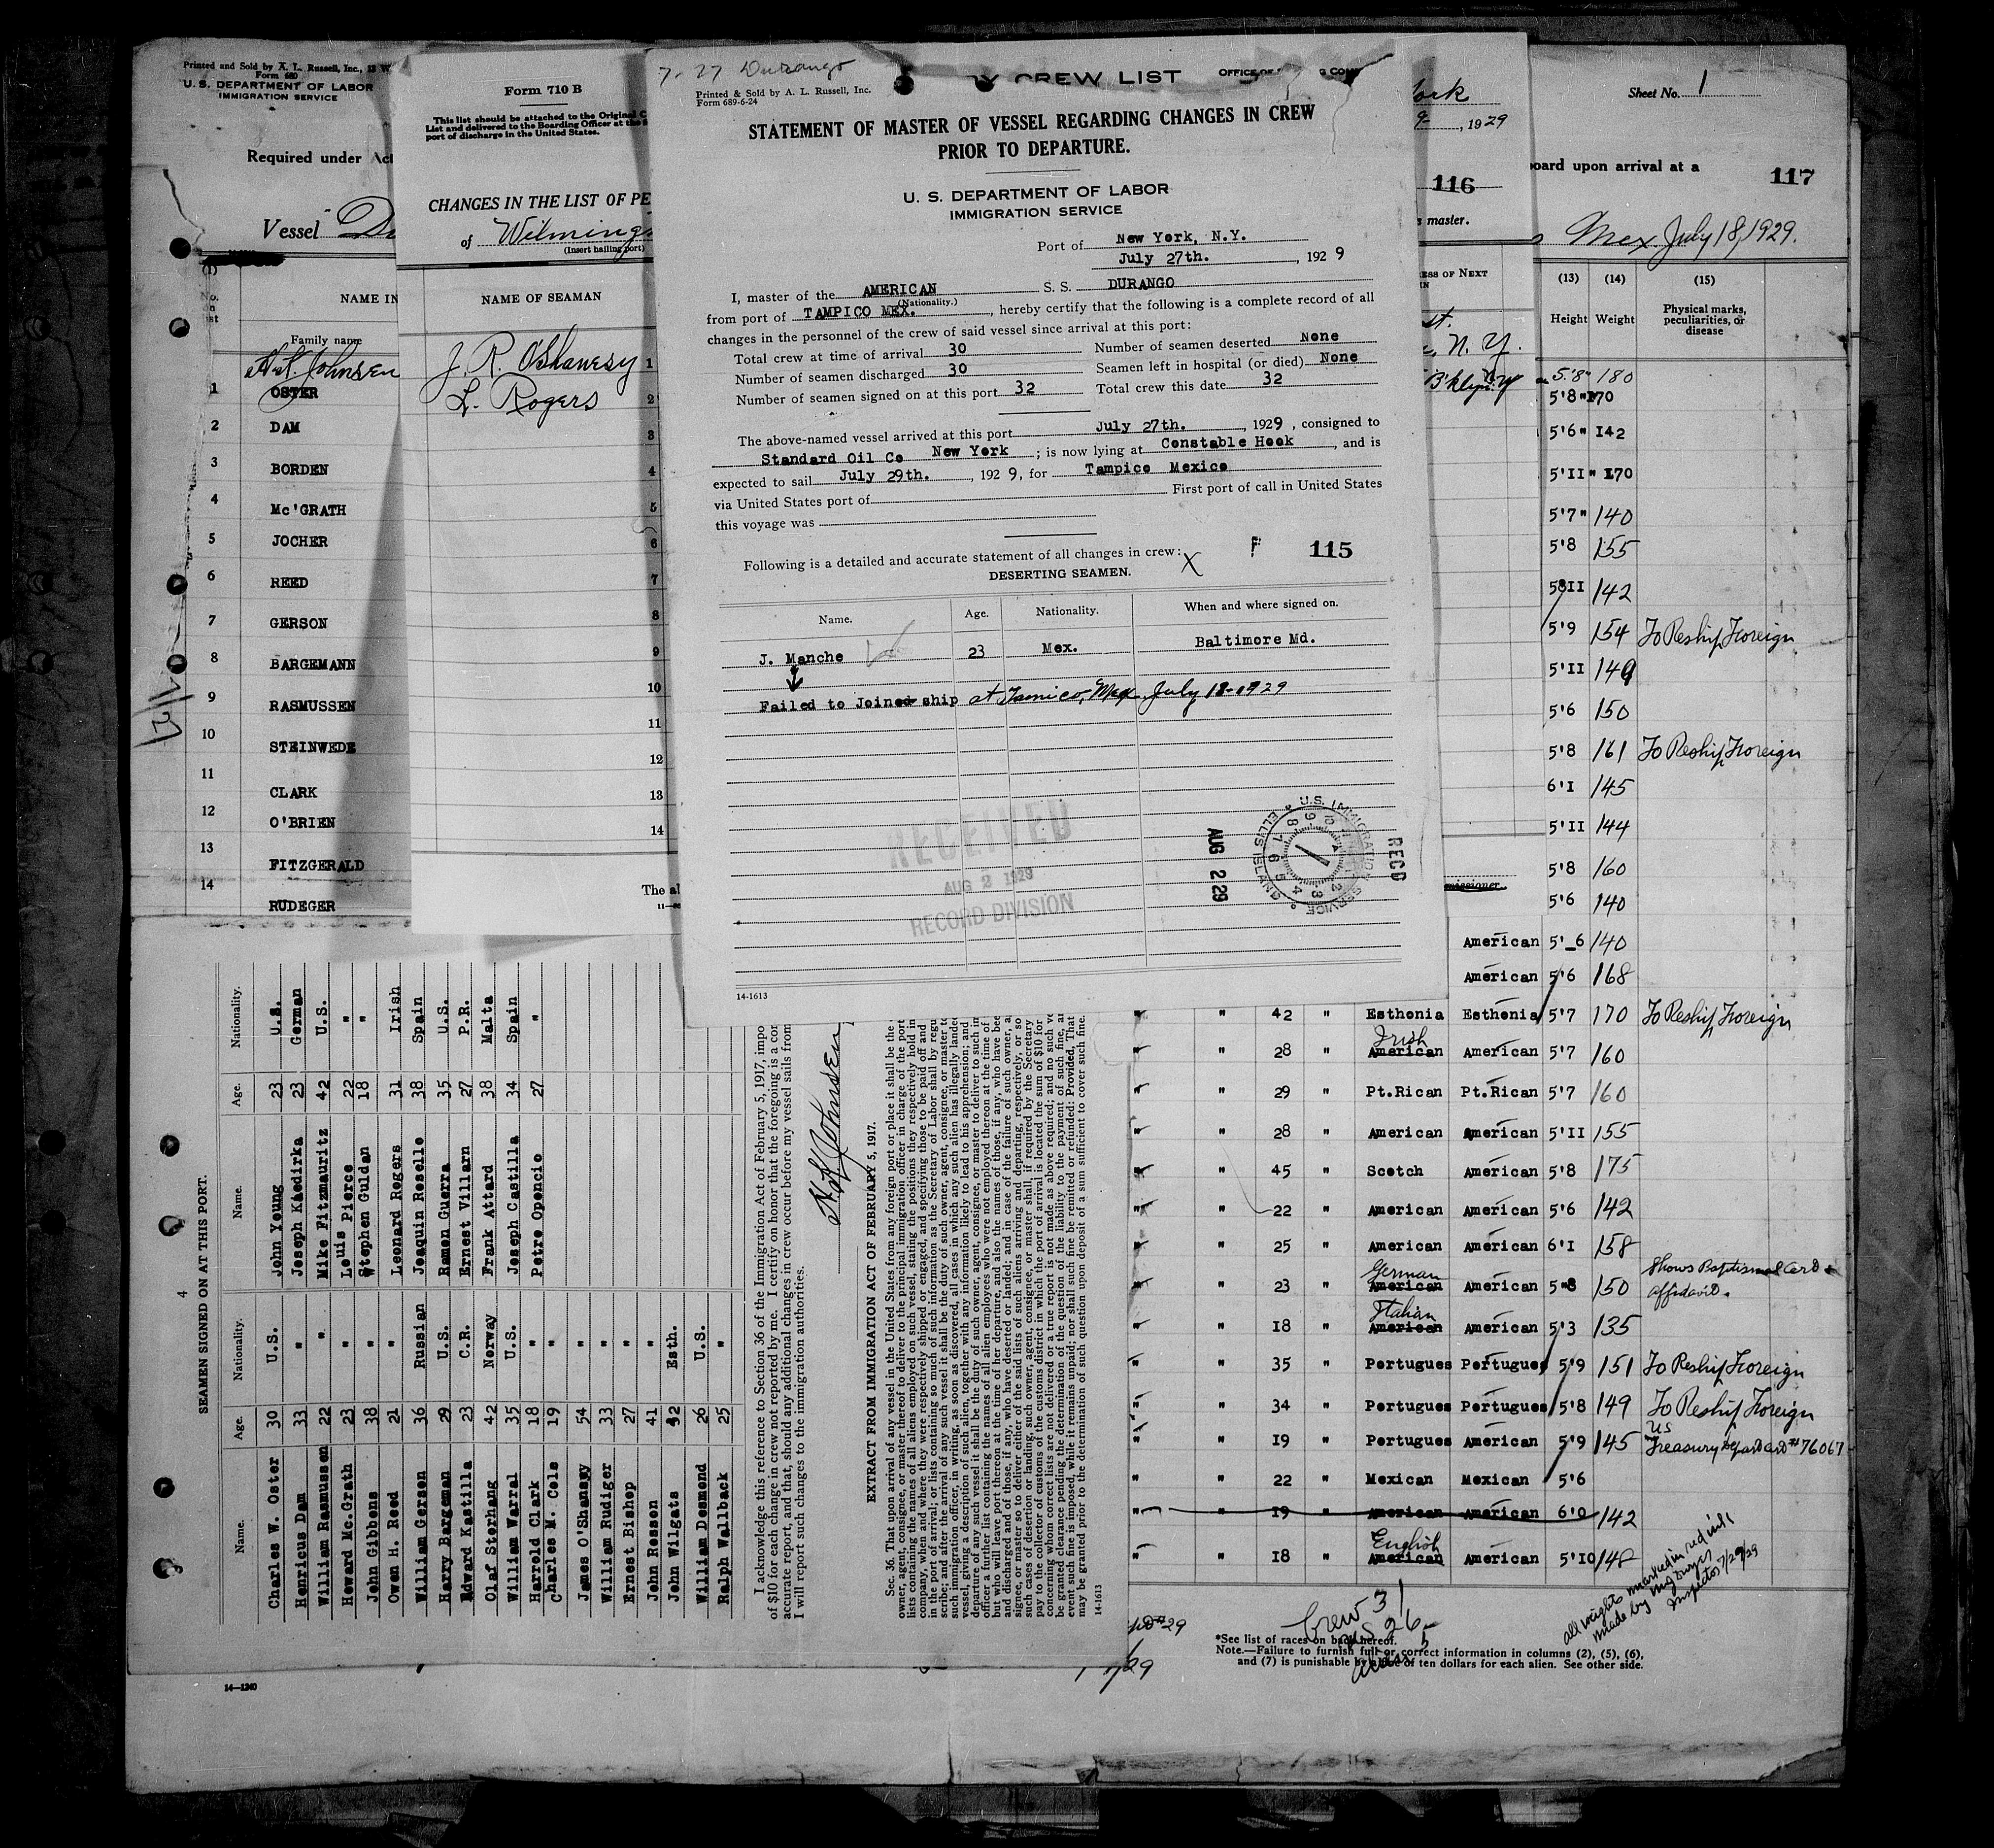 Printed and Sold by A. L. Russell, Inc., 13 W.
Form 680
U. S. DEPARTMENT OF LABOR
IMMIGRATION SERVICE
Required under Act
Vessel
(1)
No. on list
NAME IN
Family name
H. L. Johnsen
1 OSTER
2 DAM
3 BORDEN
4 Mc'GRATH
5 JOCHER
6 REED
7 GERSON
8 BARGEMANN
9 RASMUSSEN
10 STEINWEDE
11 CLARK
12 O'BRIEN
13 FITZGERALD
14 RUDEGER
Form 710 B
This list should be attached to the Original C
List and delivered to the Boarding Officer at the
port of discharge in the United States.
CHANGES IN THE LIST OF PE
of Wilming
(Insert hailing port)
NAME OF SEAMAN
J. R. O'Shawesy 1
L. Rogers 2
3
4
5
6
7
8
9
10
11
12
13
14
The al
7-27 Durango
Y CREW LIST
Printed & Sold by A. L. Russell, Inc.
Form 689-6-24
STATEMENT OF MASTER OF VESSEL REGARDING CHANGES IN CREW
PRIOR TO DEPARTURE.
U. S. DEPARTMENT OF LABOR
IMMIGRATION SERVICE
Port of New York, N.Y.
July 27th. , 1929
I, master of the AMERICAN S. S. DURANGO
(Nationality.)
from port of TAMPICO MEX. , hereby certify that the following is a complete record of all
changes in the personnel of the crew of said vessel since arrival at this port:
Total crew at time of arrival 30 Number of seamen deserted None
Number of seamen discharged 30 Seamen left in hospital (or died) None
Number of seamen signed on at this port 32 Total crew this date 32
The above-named vessel arrived at this port July 27th. , 1929 , consigned to
Standard Oil Co New York ; is now lying at Constable Hook , and is
expected to sail July 29th. , 1929, for Tampico Mexico
via United States port of First port of call in United States
this voyage was
Following is a detailed and accurate statement of all changes in crew: X F 115
DESERTING SEAMEN.
Name. Age. Nationality. When and where signed on.
J. Manche 23 Mex. Baltimore Md.
Failed to Joined ship at Tampico, Mex July 18-1929
RECEIVED
AUG 2 1929
RECORD DIVISION
AUG 2 29
U.S. IMMIGRATION SERVICE ELLIS ISLAND
RECD
14-1613
ork
, 1929
116
s master.
ESS OF NEXT
st.
, N. Y.
B'klyn N.Y
missioner.
Sheet No. 1
board upon arrival at a 117
Mex. July 18, 1929.
(13) (14) (15)
Height Weight Physical marks, peculiarities, or disease
5'8" 180
5'8" 170
5'6" 142
5'11" 170
5'7" 140
5'8 155
5'11 142
5'9 154 To Reship Foreign
5'11 149
5'6 150
5'8 161 To Reship Foreign
6'1 145
5'11 144
5'8 160
5'6 140
American 5'6 140
American 5'6 168
" " 42 " Esthonia Esthonia 5'7 170 To Reship Foreign
Irish
" " 28 " American American 5'7 160
" " 29 " Pt.Rican Pt.Rican 5'7 160
" " 28 " American American 5'11 155
" " 45 " Scotch American 5'8 175
" " 22 " American American 5'6 142
" " 25 " American American 6'1 158
German
" " 23 " American American 5"8 150 Shows Baptismal Card & affidavit.
Italian
" " 18 " American American 5'3 135
" " 35 " Portugues Portugues 5'9 151 To Reship Foreign
" " 34 " Portugues Portugues 5'8 149 To Reship Foreign
" " 19 " Portugues American 5'9 145 US Treasury Depart Card #76067
" " 22 " Mexican Mexican 5'6
" " 19 " American American 6'0 142
English
" " 18 " American American 5'10 148
all weights marked in red ink
made by
Inspector 7/29/29
Crew 31
US 26
Aliens 5
*See list of races on back hereof.
Note.—Failure to furnish full or correct information in columns (2), (5), (6),
and (7) is punishable by a fine of ten dollars for each alien. See other side.
14—1240
4
SEAMEN SIGNED ON AT THIS PORT.
Name. Age. Nationality. Name. Age. Nationality.
Charles W. Oster 30 U.S. John Young 23 U.S.
Henricus Dam 33 " Joseph Kaedirka 23 German
William Rasmussen 22 " Mike Fitzmauritz 42 U.S.
Howard Mc.Grath 23 " Louis Pierce 22 "
John Gibbens 38 " Stephen Guldan 18 "
Owen H. Reed 21 " Leonard Rogers 31 Irish
William Gersen 36 Russian Joaquin Reselle 38 Spain
Harry Bargeman 29 U.S. Ramon Guerra 35 U.S.
Edward Kastilla 23 C.R. Ernest Villarn 27 P.R.
Olaf Storhang 42 Norway Frank Attard 38 Malta
William Warral 35 U.S. Joseph Castilla 34 Spain
Harrold Clark 18 " Petre Opencio 27 "
Charles M. Cole 19 "
James O'Shansy 54 "
William Rudiger 33 "
Ernest Bishop 27 "
John Resson 41 "
John Wilgats 42 Esth.
William Desmond 26 U.S.
Ralph Wallback 25 "
I acknowledge this reference to Section 36 of the Immigration Act of February 5, 1917, impo
of $10 for each change in crew not reported by me. I certify on honor that the foregoing is a cor
accurate report, and that, should any additional changes in crew occur before my vessel sails from
I will report such changes to the immigration authorities.
H. L. Johnsen
EXTRACT FROM IMMIGRATION ACT OF FEBRUARY 5, 1917.
Sec. 36. That upon arrival of any vessel in the United States from any foreign port or place it shall be the
owner, agent, consignee, or master thereof to deliver to the principal immigration officer in charge of the port
lists containing the names of all aliens employed on such vessel, stating the positions they respectively hold in
company, when and where they were respectively shipped or engaged, and specifying those to be paid off and
in the port of arrival; or lists containing so much of such information as the Secretary of Labor shall by regu
scribe; and after the arrival of any such vessel it shall be the duty of such owner, agent, consignee, or master to
such immigration officer, in writing, as soon as discovered, all cases in which any such alien has illegally lande
vessel, giving a description of such alien, together with any information likely to lead to his apprehension; and
departure of any such vessel it shall be the duty of such owner, agent, consignee, or master to deliver to such im
officer a further list containing the names of all alien employees who were not employed thereon at the time of
but who will leave port thereon at the time of her departure, and also the names of those, if any, who have bee
and discharged and of those, if any, who have deserted or landed; and in case of the failure of such owner, a
signee, or master so to deliver either of the said lists of such aliens arriving and departing, respectively, or so
such cases of desertion or landing, such owner, agent, consignee, or master shall, if required by the Secretary
pay to the collector of customs of the customs district in which the port of arrival is located the sum of $10 for
concerning whom correct lists are not delivered or a true report is not made as above required; and no such v
be granted clearance pending the determination of the question of the liability to the payment of such fine, a
event such fine is imposed, while it remains unpaid; nor shall such fine be remitted or refunded: Provided, That
may be granted prior to the determination of such question upon deposit of a sum sufficient to cover such fine.
14-1613